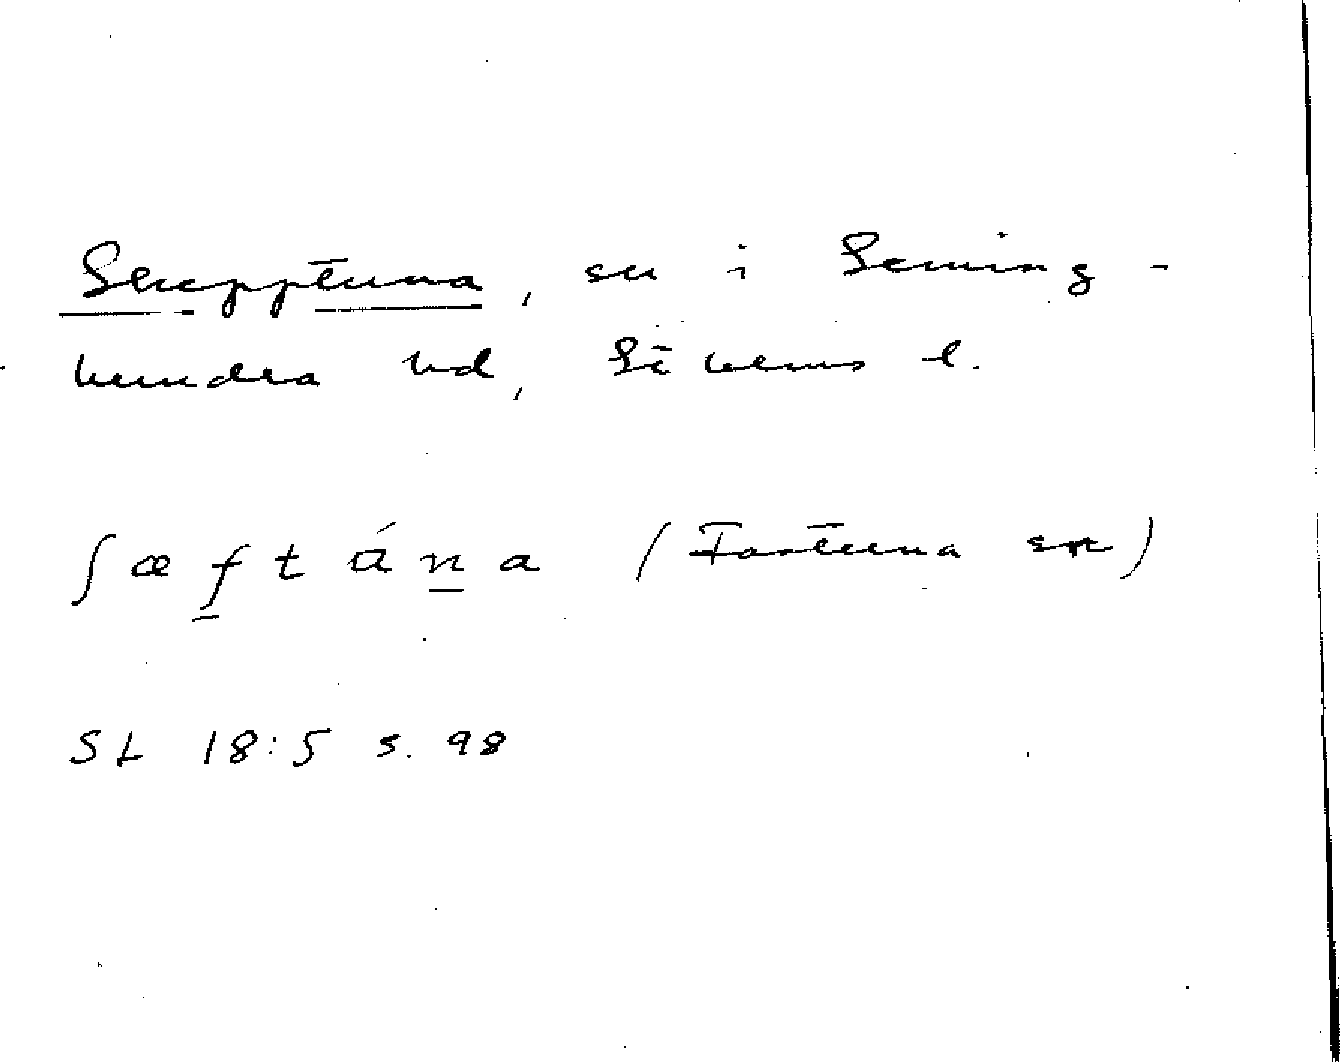 Skepptuna, sn i Seming-
hundra hd, Stockholms l.
ʃæftána (Fasterna sn)
SL 18:5 s. 98